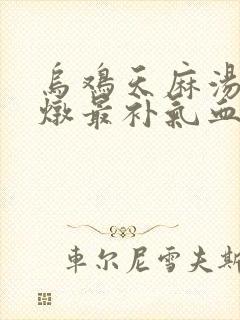 乌鸡天麻汤
燉最补氣血
車尔尼雪夫斯